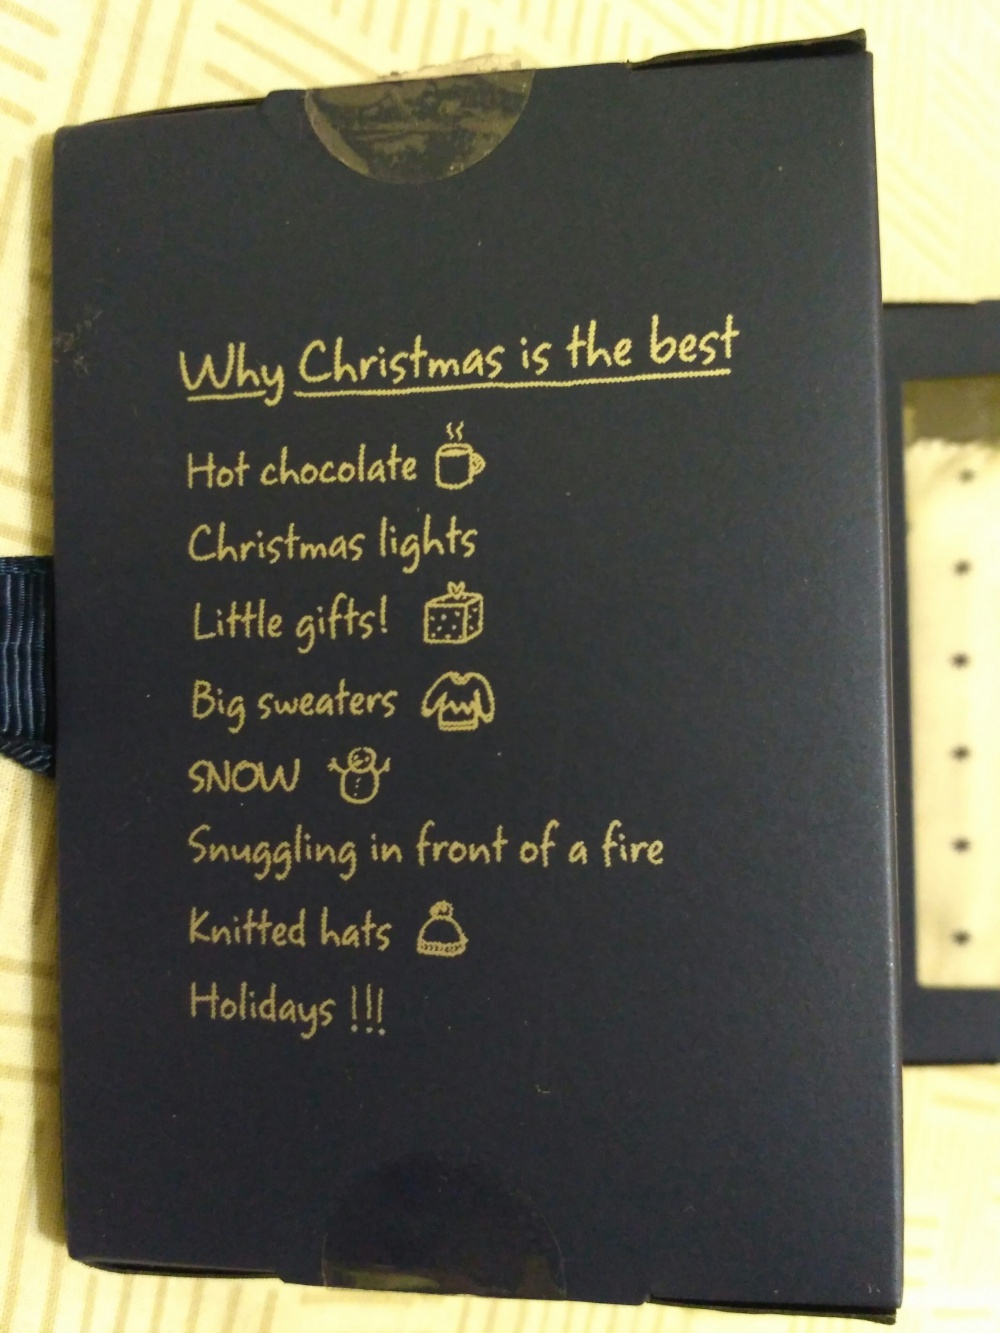 Why Christmas is the best
Hot chocolate
Christmas lights
Little gifts!
Big sweaters
SNOW
Snuggling in front of a fire
Knitted hats
Holidays !!!